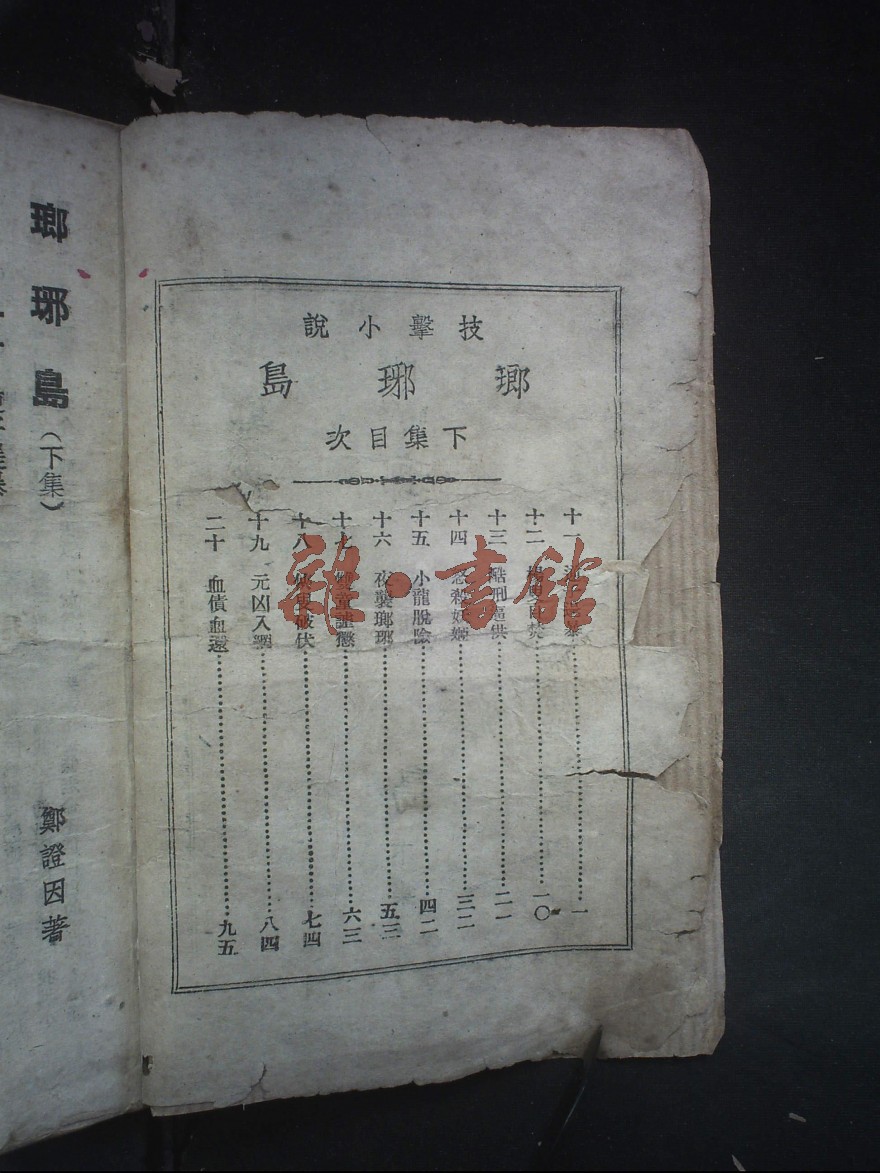 技擊小說
瑯琊島
下集目次
十一
十二 一〇
十三 酷刑逼供 二一
十四 忿殺奴 三二
十五 小龍脫險 四二
十六 夜襲瑯琊 五三
十七 雙童誅懲 六三
十八 破伏 七四
十九 元凶入網 八四
二十 血債血還 九五
瑯琊島(下集)
鄭證因著
雜·書館